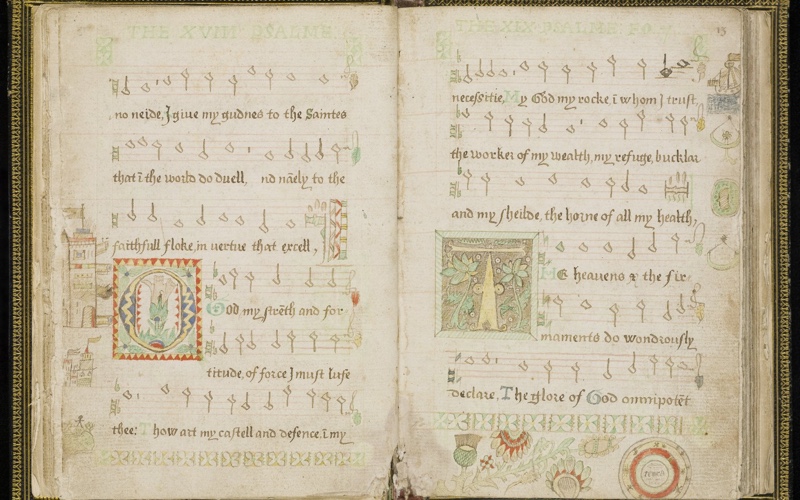 THE XVIII PSALME
no neide, I giue my gudnes to the Saintes
that ī the world do duell, nd nāely to the
faithfull floke, in vertue that excell,
O God my strēth and for
titude, of force I must lufe
thee: Thow art my castell and defence, ī my
THE XIX PSALME FO
13
necessitie, My God my rocke, ī whom I trust,
the worker of my wealth, my refuge, bucklar
and my sheilde, the horne of all my health,
THE heauens & the fir
maments do wondrously
declare, The glore of God omnipotēt